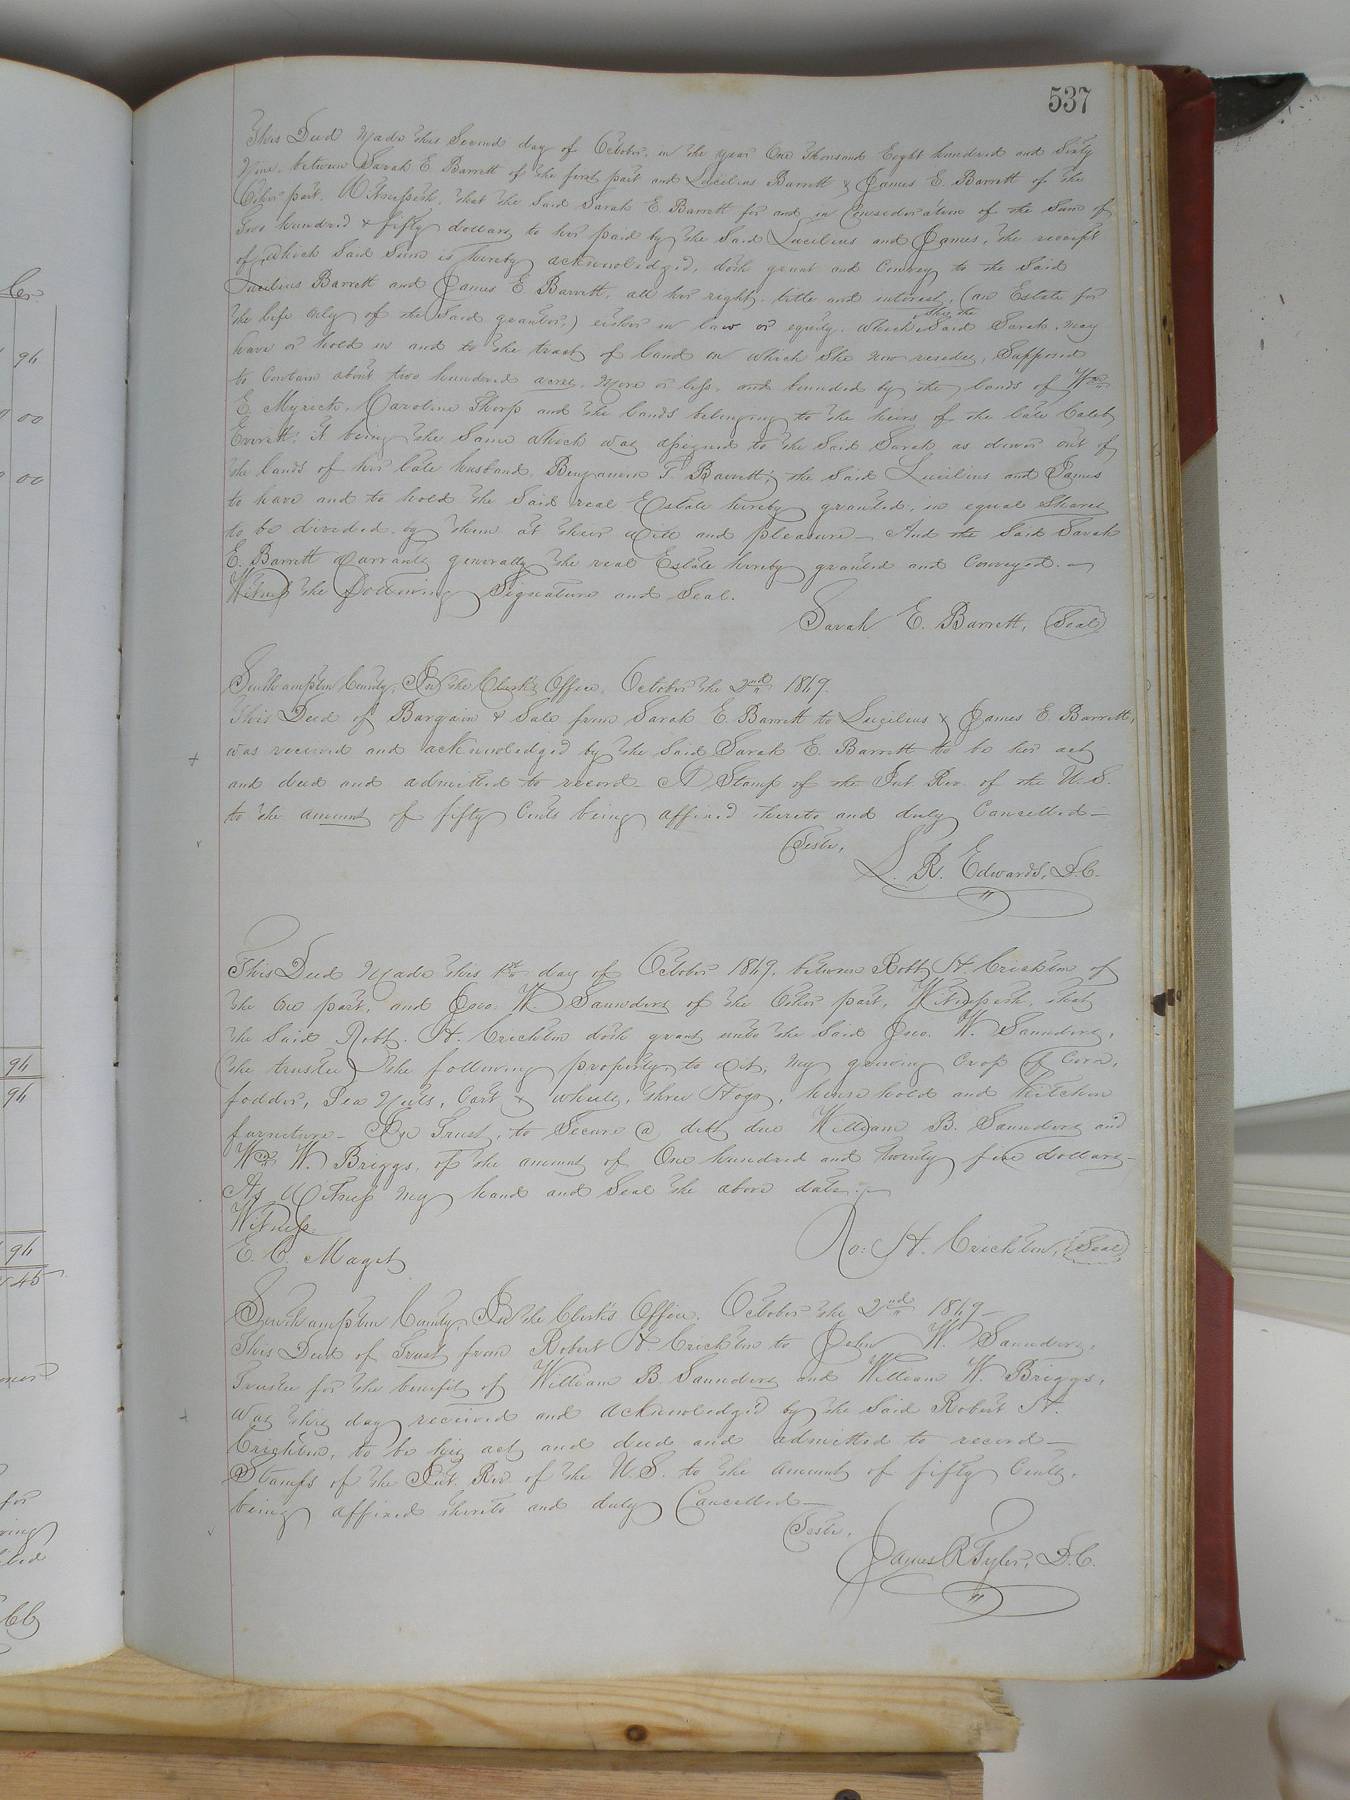 537
This Deed Made this Second day of October, in the year One Thousand Eeght hundred and Sixty
Nine, between Sarah E. Barrett of the first part and Lucilius Barrett & James E. Barrett of the
Other part. Witnesseth, that the Said Sarah E. Barrett for and in Consideration of the Sum of
Two hundred & fifty dollars to her paid by the Said Lucilius and James, the receipt
of which Said Sum is hereby acknowledged, doth grant and Convey to the Said
Lucilius Barrett and James E. Barrett, all her right, title and interest, (an Estate for
the life only of the Said grantor,) either in law or equity, which Said Sarah, may
this the
have or hold in and to the tract of land on which She now resides, Supposed
to Contain about two hundred acres, More or less, and bounded by the lands of Wm
E. Myrick, Caroline Thorp and the lands belonging to the heirs of the late Caleb
Everett; it being the Same which was assigned to the Said Sarah as dower out of
the lands of her late husband, Benjamin T. Barrett; the Said Lucilius and James
to have and to hold the Said real Estate hereby granted, in equal Shares
to be divided by them at their will and pleasure— And the Said Sarah
E. Barrett warrants generally the real Estate hereby granted and Conveyed.—
Witness the following Signature and Seal.
Sarah E. Barrett, (Seal)
Southampton County, In the Clerk's Office, October the 2nd 1869.
This Deed of Bargain & Sale from Sarah E. Barrett to Lucilius & James E. Barrett,
was received and acknowledged by the Said Sarah E. Barrett to be her act
and deed and admitted to record— A Stamp of the Int. Rev. of the U.S.
to the amount of fifty Cents being affixed thereto and duly Cancelled—
Teste,
L. R. Edwards, D.C.
This Deed Made this 1st day of October 1869, between Robt. H. Crichton of
the one part, and Jno. W. Saunders of the Other part, Witnesseth, that
the Said Robt. H. Crichton doth grant unto the Said Jno. W. Saunders,
(the trustee) the following property to wit, My growing Crop of Corn,
fodder, Pea Nuts, Cart & wheels, three Hogs, house hold and Kitchen
furniture— In Trust, to Secure a debt due William B. Saunders and
Wm. W. Briggs, of the amount of One hundred and twenty five dollars—
As Witness My hand and Seal the above date.—
Witness
E. C. Maget
Ro: H. Crichton, (Seal)
Southampton County, In the Clerk's Office, October the 2nd 1869—
This Deed of Trust from Robert H. Crichton to John W. Saunders,
Trustee for the benefit of William B. Saunders and William W. Briggs,
Was this day received and acknowledged by the Said Robert H.
Crighton, to be his act and deed and admitted to record—
Stamps of the Int. Rev. of the U.S. to the amount of fifty Cents,
being affixed thereto and duly Cancelled—
Teste,
James R. Tyler, D.C.